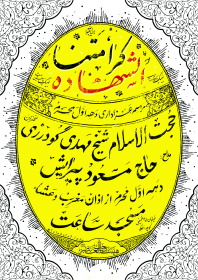 کرامتنا
الشهاده
مراسم عزاداری دهه اول محرم
حجت الاسلام شیخ مهدی گودرزی
حاج مسعود پیرایش
دهه اول محرم از اذان مغرب و عشاء
مسجد ساعت